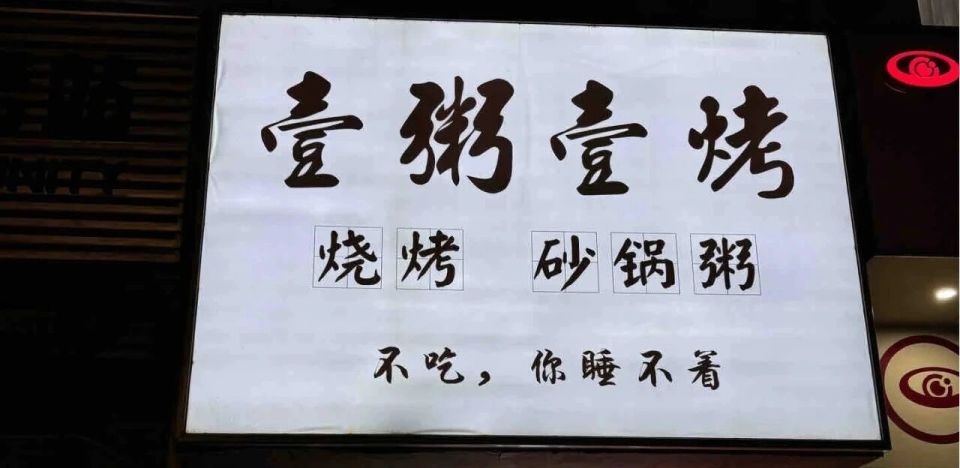 壹粥壹烤
烧烤 砂锅粥
不吃，你睡不着